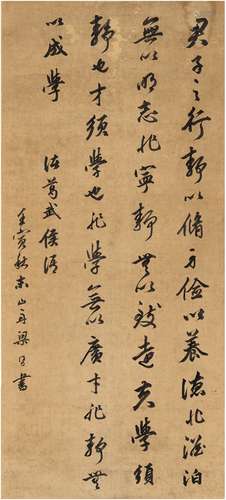 君子之行靜以脩身儉以養德非澹泊
無以明志非寧靜無以致遠夫學須
靜也才須學也非學無以廣才非靜無
以成學 諸葛武侯語
壬寅秋末山舟梁同書